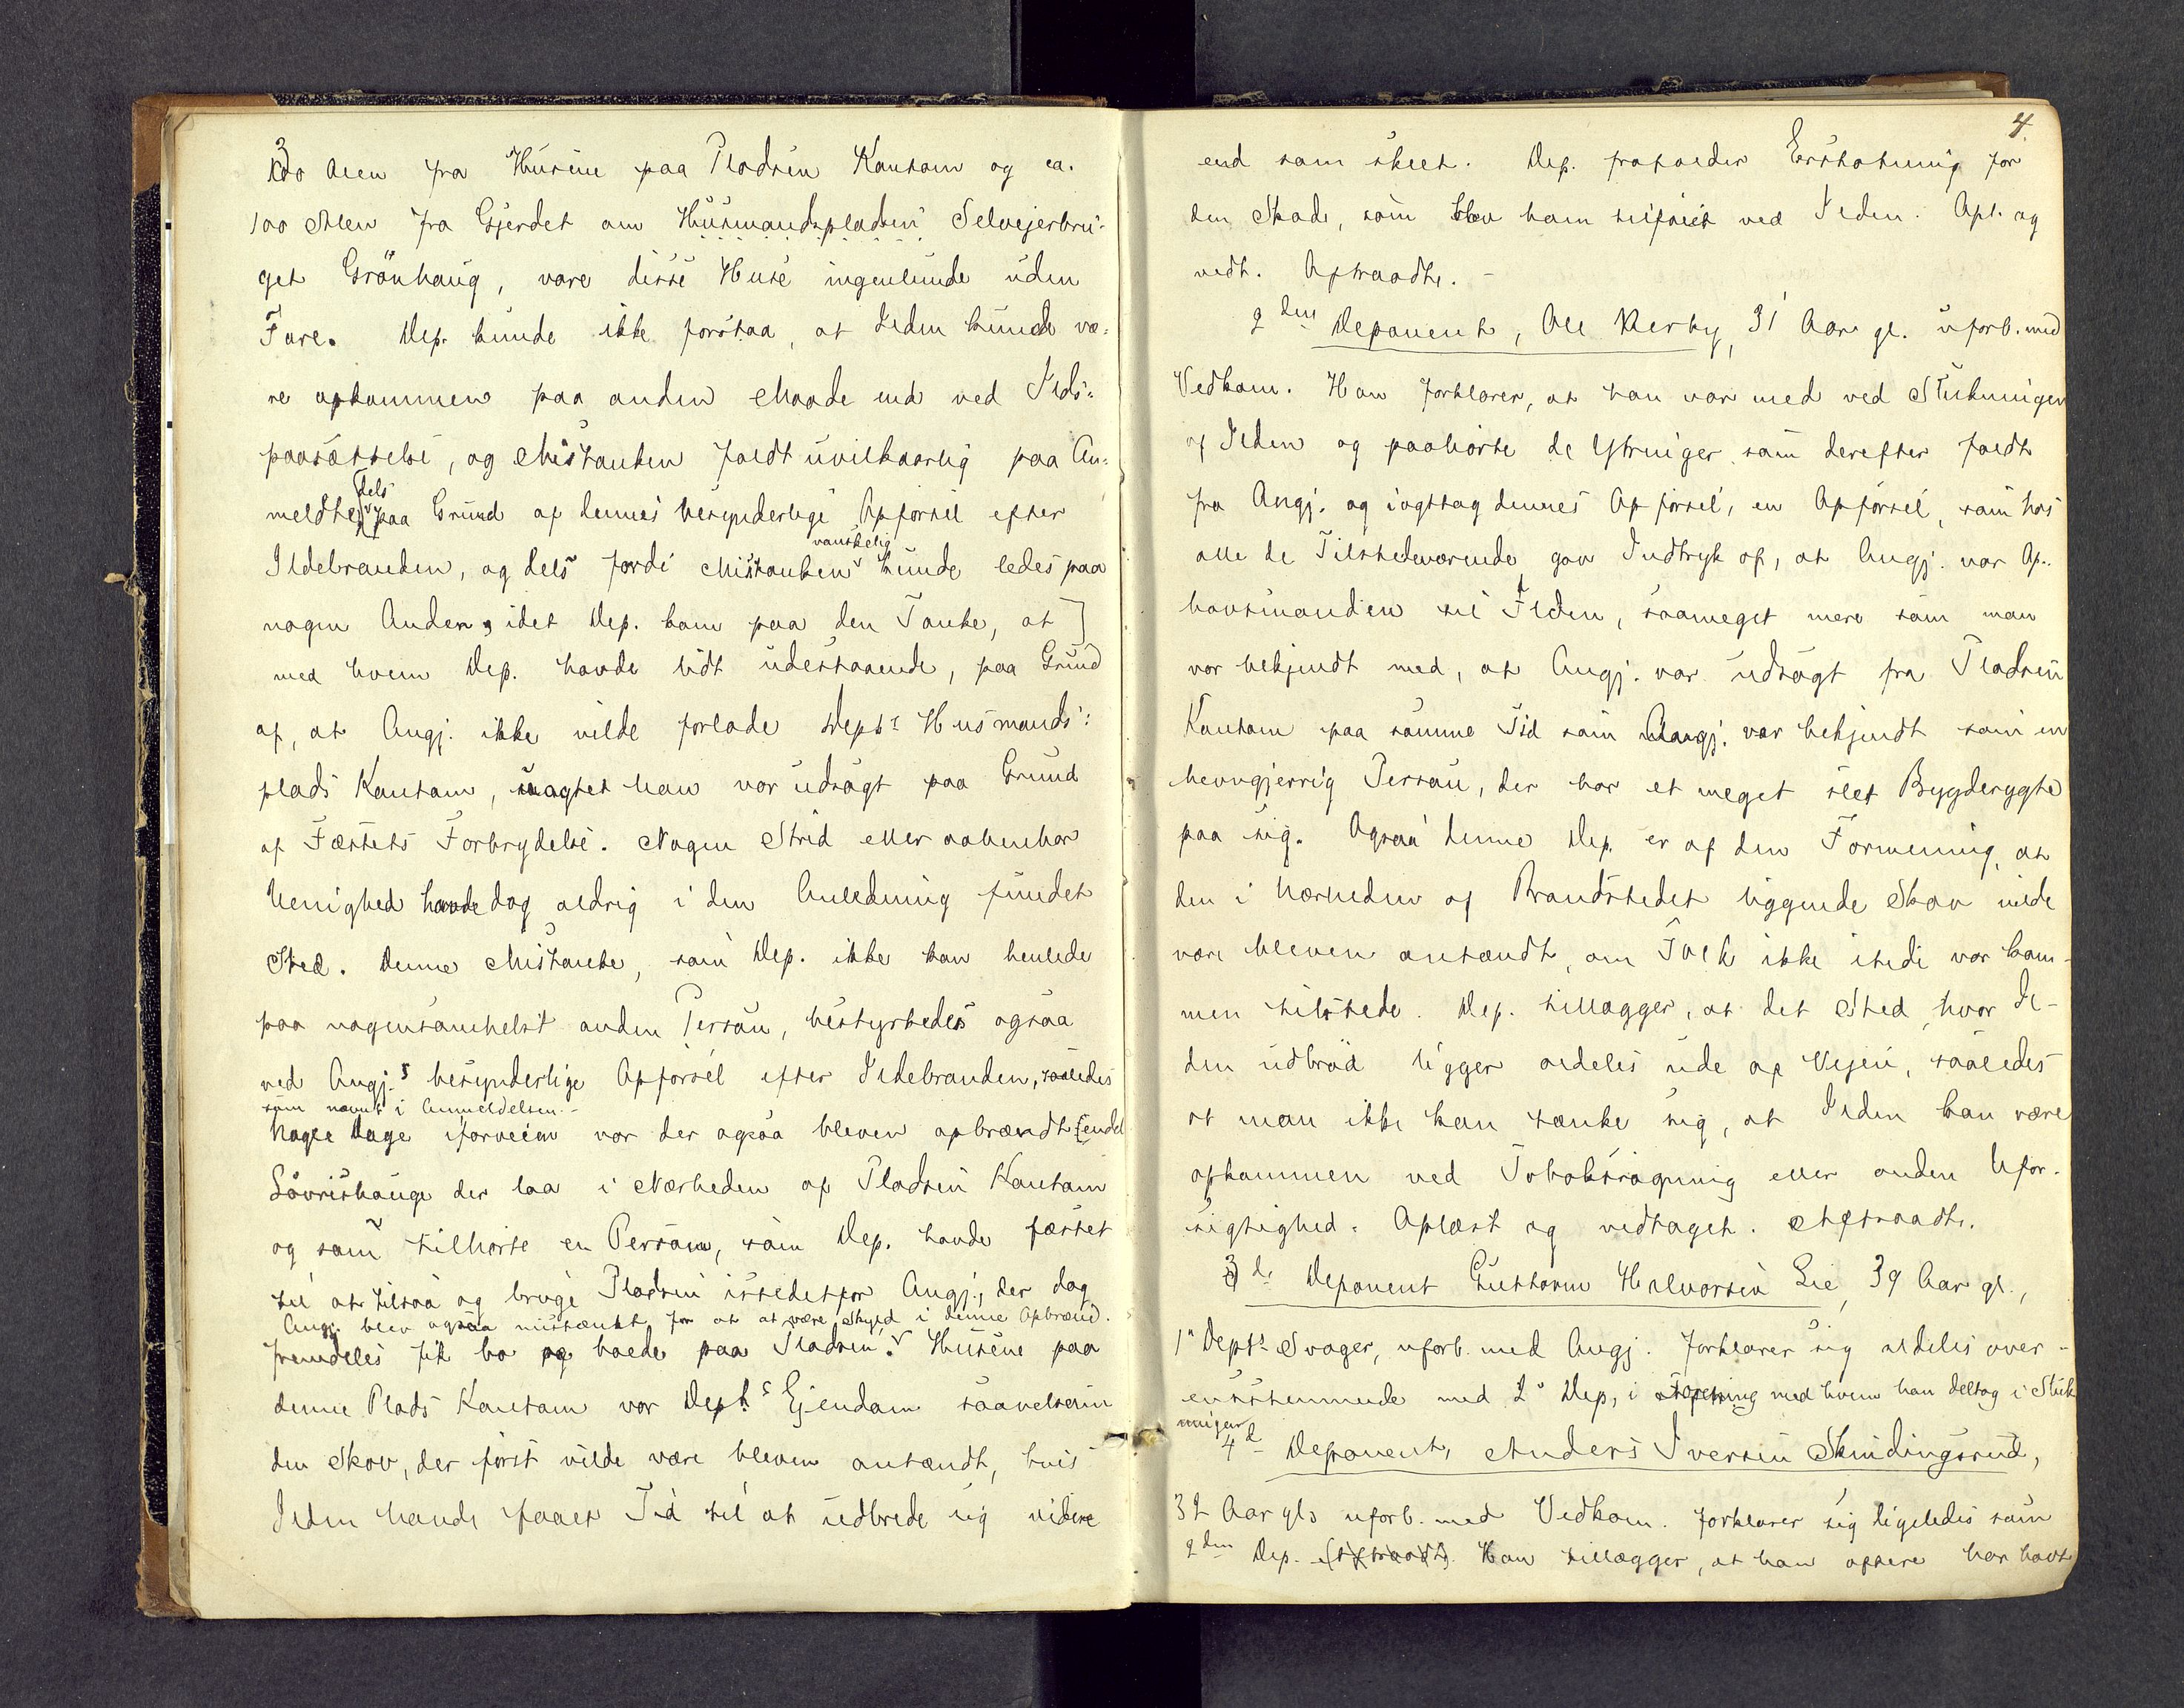 300 Alen fra Husene paa Pladsen Kantom og ca.
100 Alen fra Gjerdet om Husmandspladsen Selveierbru-
get Grönhaug, vare disse Huse ingenlunde uden
Fare. Dep. kunde ikke forstaa, at Ilden kunde væ-
re opkommen paa anden Maade end ved Ilds-
paasættelse, og Mistanken faldt uvilkaarlig paa An-
meldte dels paa Grund af dennes besynderlige Opförsel efter
Ildebranden, og dels fordi Mistanken vanskelig kunde ledes paa
nogen Anden, idet Dep. kom paa den Tanke, at
med hvem Dep. havde lidt udestaaende, paa Grund
af, at Angj. ikke vilde forlade Depts Husmands-
plads Kantom, uagtet han var udsagt paa Grund
af Fæstets Forbrydelse. Nogen Strid eller aabenbar
Uenighed havde dog aldrig i den Anledning fundet
Sted. Denne Mistanke, som Dep. ikke kan henlede
paa nogensomhelst anden Person, bestyrkedes ogsaa
ved Angj.s besynderlige Opförsel efter Ildebranden, saaledes
som nævnt i Anmeldelsen.-
Nogle Dage iforveien var der ogsaa bleven opbrændt endel
Lövrishauge der laa i Nærheden af Pladsen Kantom
og som tilhörte en Person, som Dep. havde fæstet
til at tilsaa og bruge Pladsen istedetfor Angj., der dog
Angj. blev ogsaa mistænkt for at at være Skyld i denne Opbrænd.
fremdeles fik bo og boede paa Pladsen. Husene paa
denne Plads Kantom var Depts Ejendom saavelsom
den Skov, der först vilde være bleven antændt, hvis
Ilden havde faaet Tid til at udbrede sig videre
4.
end som skeet. Dep. frafalder Erstatning for
den Skade, som blev ham tilföiet ved Ilden. Opl. og
vedt. Aftraadte. -
2den Deponent, Ole Kerby, 31 Aar gl. uforb. med
Vedkom. Han forklarer, at han var med ved Slukningen
af Ilden og paahörte de Ytringer som derefter faldt
fra Angj. og iagttog dennes Opförsel, en Opförsel, som hos
alle de Tilstedeværende gav Indtryk af, at Angj. var Op-
havsmanden til Ilden, saameget mere som man
var bekjendt med, at Angj. var udsagt fra Pladsen
Kantom paa samme Tid som Angj. var bekjendt som en
hevngjerrig Person, der har et meget slet Bygderygte
paa sig. Ogsaa denne Dep. er af den Formening, at
den i Nærheden af Brandstedet liggende Skov vilde
være bleven antændt, om Folk ikke itide var kom-
men tilstede. Dep. tillægger, at det Sted, hvor Il-
den udbröd ligger aldeles ude af Vejen, saaledes
at man ikke kan tænke sig, at Ilden kan være
opkommen ved Tobaksrögning eller anden Ufor-
sigtighed. Oplæst og vedtaget. Aftraadte.
3de Deponent Guttorm Halvorsen Lie, 39 Aar gl.,
1ste Depts Svoger, uforb. med Angj. forklarer sig aldeles over-
ensstemmende med 2de Dep, i Forening med hvem han deltog i Sluk-
ningen
4de Deponent, Anders Iversen Skindingsrud,
32 Aar gl, uforb. med Vedkom. forklarer sig ligeledes som
2den Dep. Aftraadte. Han tillægger, at han oftere har havt